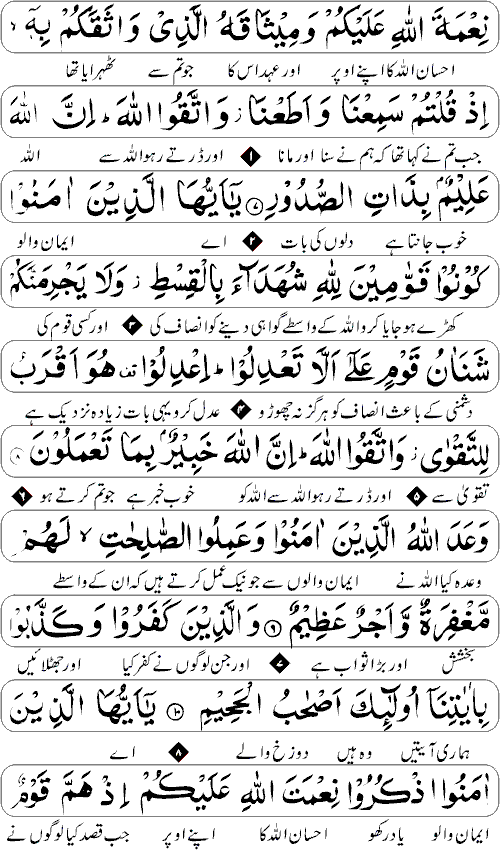 نِعْمَةَ اللّٰهِ عَلَيْكُمْ وَمِيْثَاقَهُ الَّذِىْ وَاثَقَكُمْ بِهٖٓ ۙ
احسان اللہ کا اپنے اوپر اور عہد اس کا جو تم سے ٹھہرایا تھا
اِذْ قُلْتُمْ سَمِعْنَا وَاَطَعْنَا ز وَاتَّقُوا اللّٰهَ ؕ اِنَّ اللّٰهَ
جب تم نے کہا تھا کہ ہم نے سنا اور مانا ۱ اور ڈرتے رہو اللہ سے اللہ
عَلِيْمٌۢ بِذَاتِ الصُّدُوْرِ ۷ يٰۤاَيُّهَا الَّذِيْنَ اٰمَنُوْا
خوب جانتا ہے دلوں کی بات ۲ اے ایمان والو
كُوْنُوْا قَوّٰمِيْنَ لِلّٰهِ شُهَدَآءَ بِالْقِسْطِ ز وَلَا يَجْرِمَنَّكُمْ
کھڑے ہو جایا کرو اللہ کے واسطے گواہی دینے کو انصاف کی ۳ اور کسی قوم کی
شَنَاٰنُ قَوْمٍ عَلٰٓى اَلَّا تَعْدِلُوْا ؕ اِعْدِلُوْا قف هُوَ اَقْرَبُ
دشمنی کے باعث انصاف کو ہرگز نہ چھوڑو ۴ عدل کرو یہی بات زیادہ نزدیک ہے
لِلتَّقْوٰى ز وَاتَّقُوا اللّٰهَ ؕ اِنَّ اللّٰهَ خَبِيْرٌۢ بِمَا تَعْمَلُوْنَ ۸
تقویٰ سے ۵ اور ڈرتے رہو اللہ سے اللہ کو خوب خبر ہے جو تم کرتے ہو ۶
وَعَدَ اللّٰهُ الَّذِيْنَ اٰمَنُوْا وَعَمِلُوا الصّٰلِحٰتِ ۙ لَهُمْ
وعدہ کیا اللہ نے ایمان والوں سے جو نیک عمل کرتے ہیں کہ ان کے واسطے
مَّغْفِرَةٌ وَّاَجْرٌ عَظِيْمٌ ۹ وَالَّذِيْنَ كَفَرُوْا وَكَذَّبُوْا
بخشش اور بڑا ثواب ہے ۷ اور جن لوگوں نے کفر کیا اور جھٹلائیں
بِاٰيٰتِنَآ اُولٰٓئِكَ اَصْحٰبُ الْجَحِيْمِ ۱۰ يٰۤاَيُّهَا الَّذِيْنَ
ہماری آیتیں وہ ہیں دوزخ والے ۸ اے
اٰمَنُوا اذْكُرُوْا نِعْمَتَ اللّٰهِ عَلَيْكُمْ اِذْ هَمَّ قَوْمٌ
ایمان والو یاد رکھو احسان اللہ کا اپنے اوپر جب قصد کیا لوگوں نے